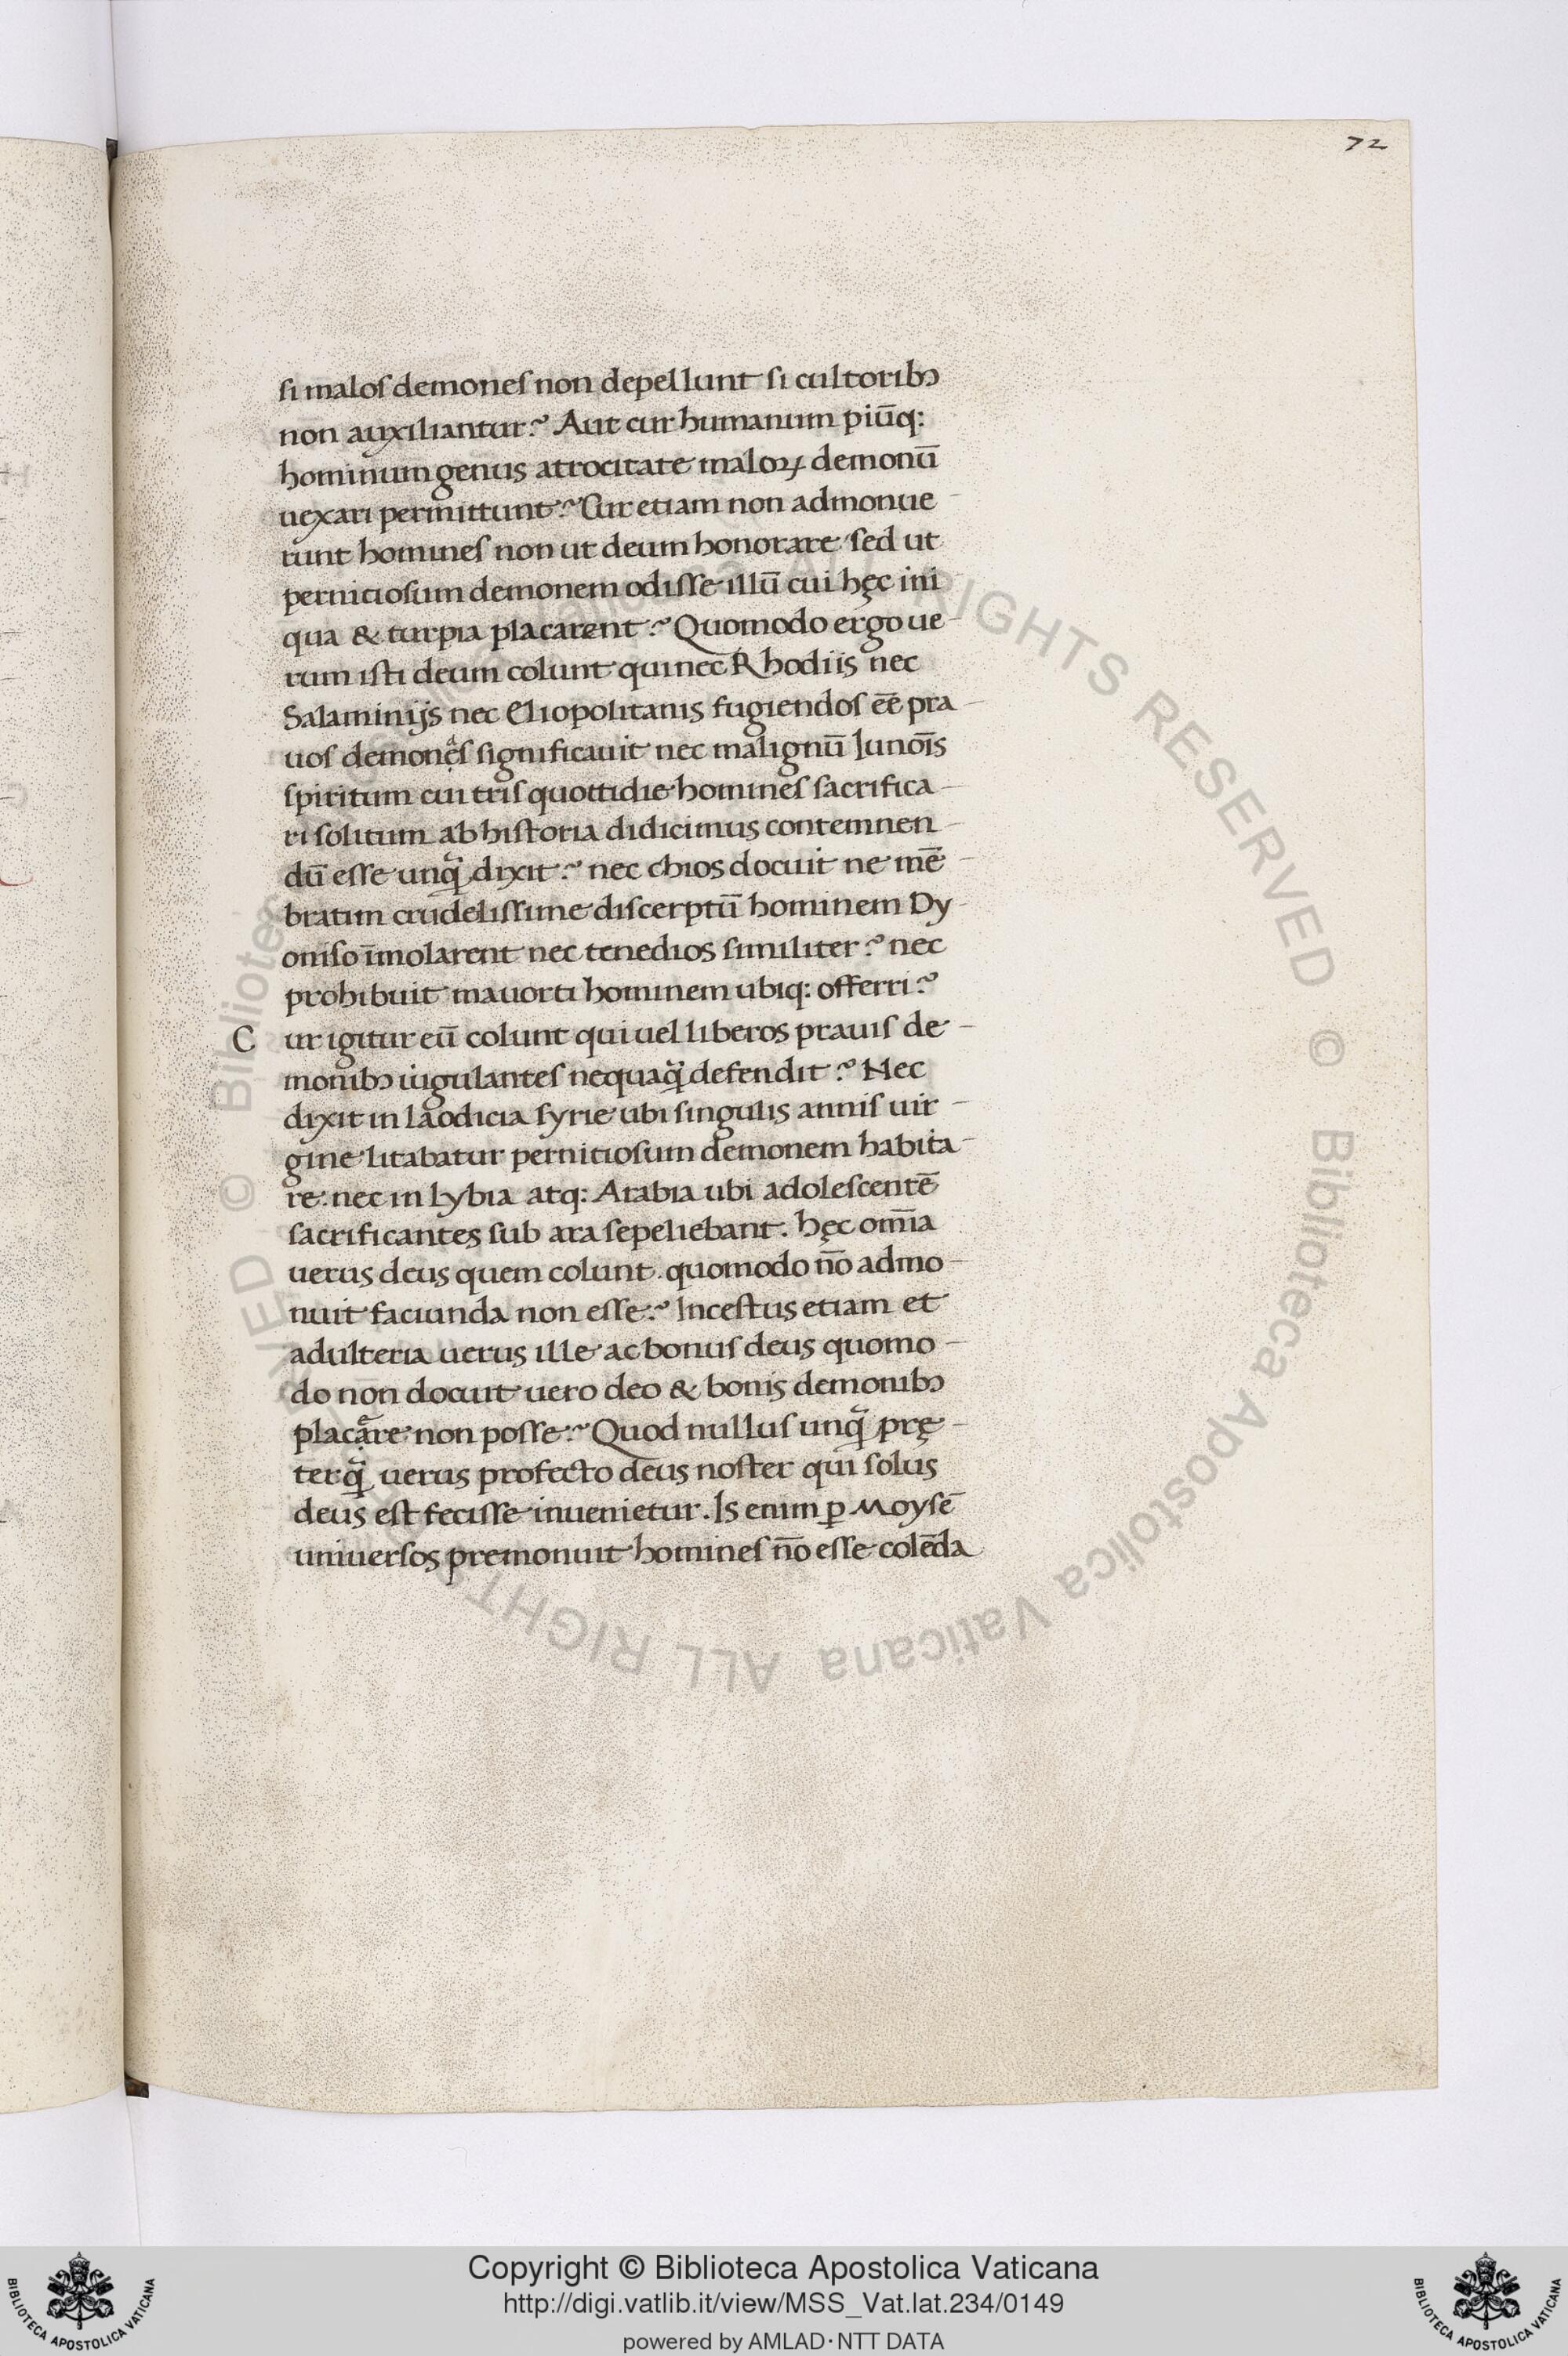 72
si malos demones non depellunt si cultoribꝫ
non auxiliantur? Aut cur humanum piūq:
hominum genus atrocitate maloꝝ demonū
uexari permittunt? Cur etiam non admonue-
runt homines non ut deum honorare sed ut
pernitiosum demonem odisse illū cui hęc ini
qua & turpia placarent? Quomodo ergo ue-
rum isti deum colunt qui nec Rhodiis nec
Salaminijs nec Eliopolitanis fugiendos eē pra-
uos demonẹas significauit nec malignū Iunoīs
spiritum cui tris quottidie homines sacrifica-
ri solitum ab historia didicimus contemnen-
dū esse unqͣ dixit? nec chios docuit ne mē-
bratim crudelissime discerptū hominem Dy-
oniso īmolarent nec tenedios similiter? nec
prohibuit mauorti hominem ubiq: offerri?
C ur igitur eū colunt qui uel liberos prauis de-
monibꝫ iugulantes nequaqͣ defendit? Nec
dixit in laodicia syrie ubi singulis annis uir-
gine litabatur pernitiosum demonem habita-
re. nec in Lybia atq: Arabia ubi adolescentē
sacrificantes sub ara sepeliebant. hęc om̄ia
uerus deus quem colunt. quomodo nō admo-
nuit faciunda non esse? Incestus etiam et
adulteria uerus ille ac bonus deus quomo-
do non docuit uero deo & bonis demonibꝫ
placạare non posse? Quod nullus unqͣ prę-
terqͣ uerus profecto deus noster qui solus
deus est fecisse inuenietur. Is enim ꝑ Moysē
uniuersos premonuit homines nō esse colēda
Copyright © Biblioteca Apostolica Vaticana
http://digi.vatlib.it/view/MSS_Vat.lat.234/0149
powered by AMLAD·NTT DATA
BIBLIOTECA APOSTOLICA VATICANA
BIBLIOTECA APOSTOLICA VATICANA